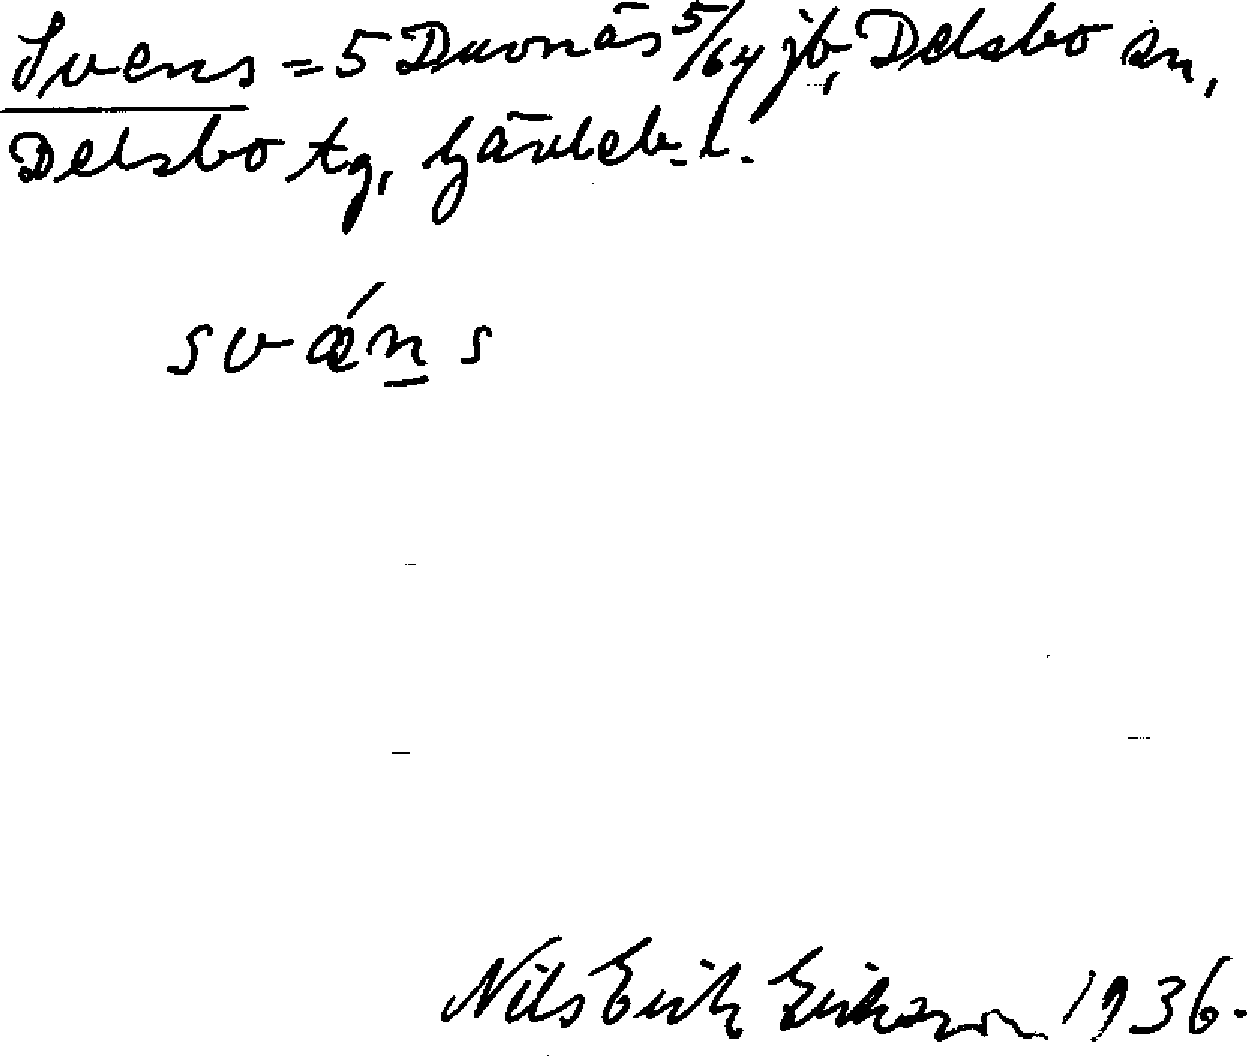 Svens = 5 Duonäs 5/64 jb, Delsbo sn,
Delsbo tg, Gävleb. l.
svǽn̲s
Nils Erik Erikson 1936.